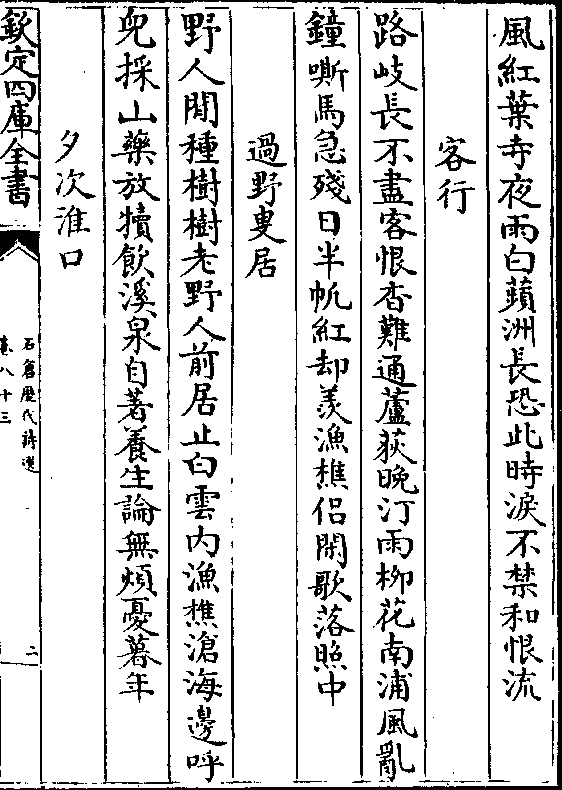 風紅葉寺夜雨白蘋洲長恐此時淚不禁和恨流
客行
路岐長不盡客恨杳難通蘆荻晚汀雨柳花南浦風亂
鐘嘶馬急殘日半帆紅却羡漁樵侶閑歌落照中
過野叟居
野人閒種樹樹老野人前居止白雲内漁樵滄海邊呼
兒採山藥放犢飲溪泉自著養生論無煩憂暮年
夕次淮口
欽定四庫全書
石倉歷代詩選
卷八十三
二